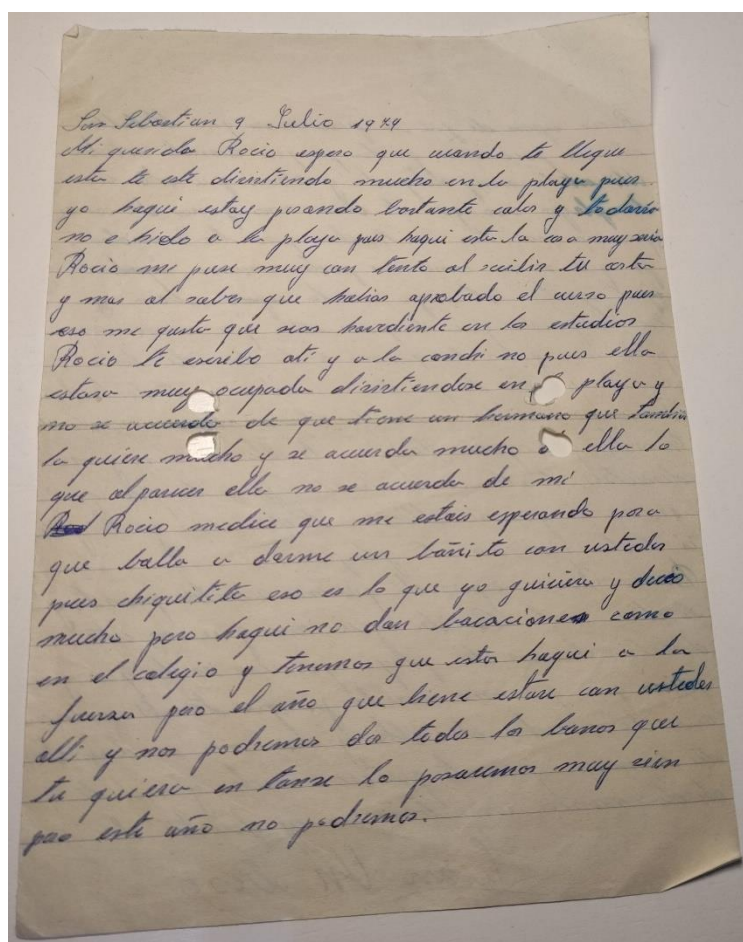 San Sebastian 9 Julio 1979
Mi querida Rocio espero que cuando te llegue
esta te este divirtiendo mucho en la playa pues
yo haqui estoy pasando bastante calor y todavia
no e hido a la playa pues haqui esta la cosa muy seria
Rocio me puse muy contento al recibir tu carta
y mas al saber que habias aprobado el curso pues
eso me gusta que seas en los estudios
Rocio te escribo ati y a la conchi no pues ella
estara muy ocupada divirtiendose en playa y
no se acuerda de que tiene un hermano que
la quiere mucho y se acuerda mucho ella lo
que al parecer ella no se acuerda de mi
Rocio medice que me estais esperando para
que balla a darme un bañito con ustedes
pues chiquitita eso es lo que yo quiciera y deceo
mucho pero haqui no dan bacaciones como
en el colegio y tenemos que estar haqui a la
fuerza pero el año que biene estare con ustedes
alli y nos podremos dar todos los banos que
tu quiera en tonse lo pasaremos muy vien
pero este año no podremos.